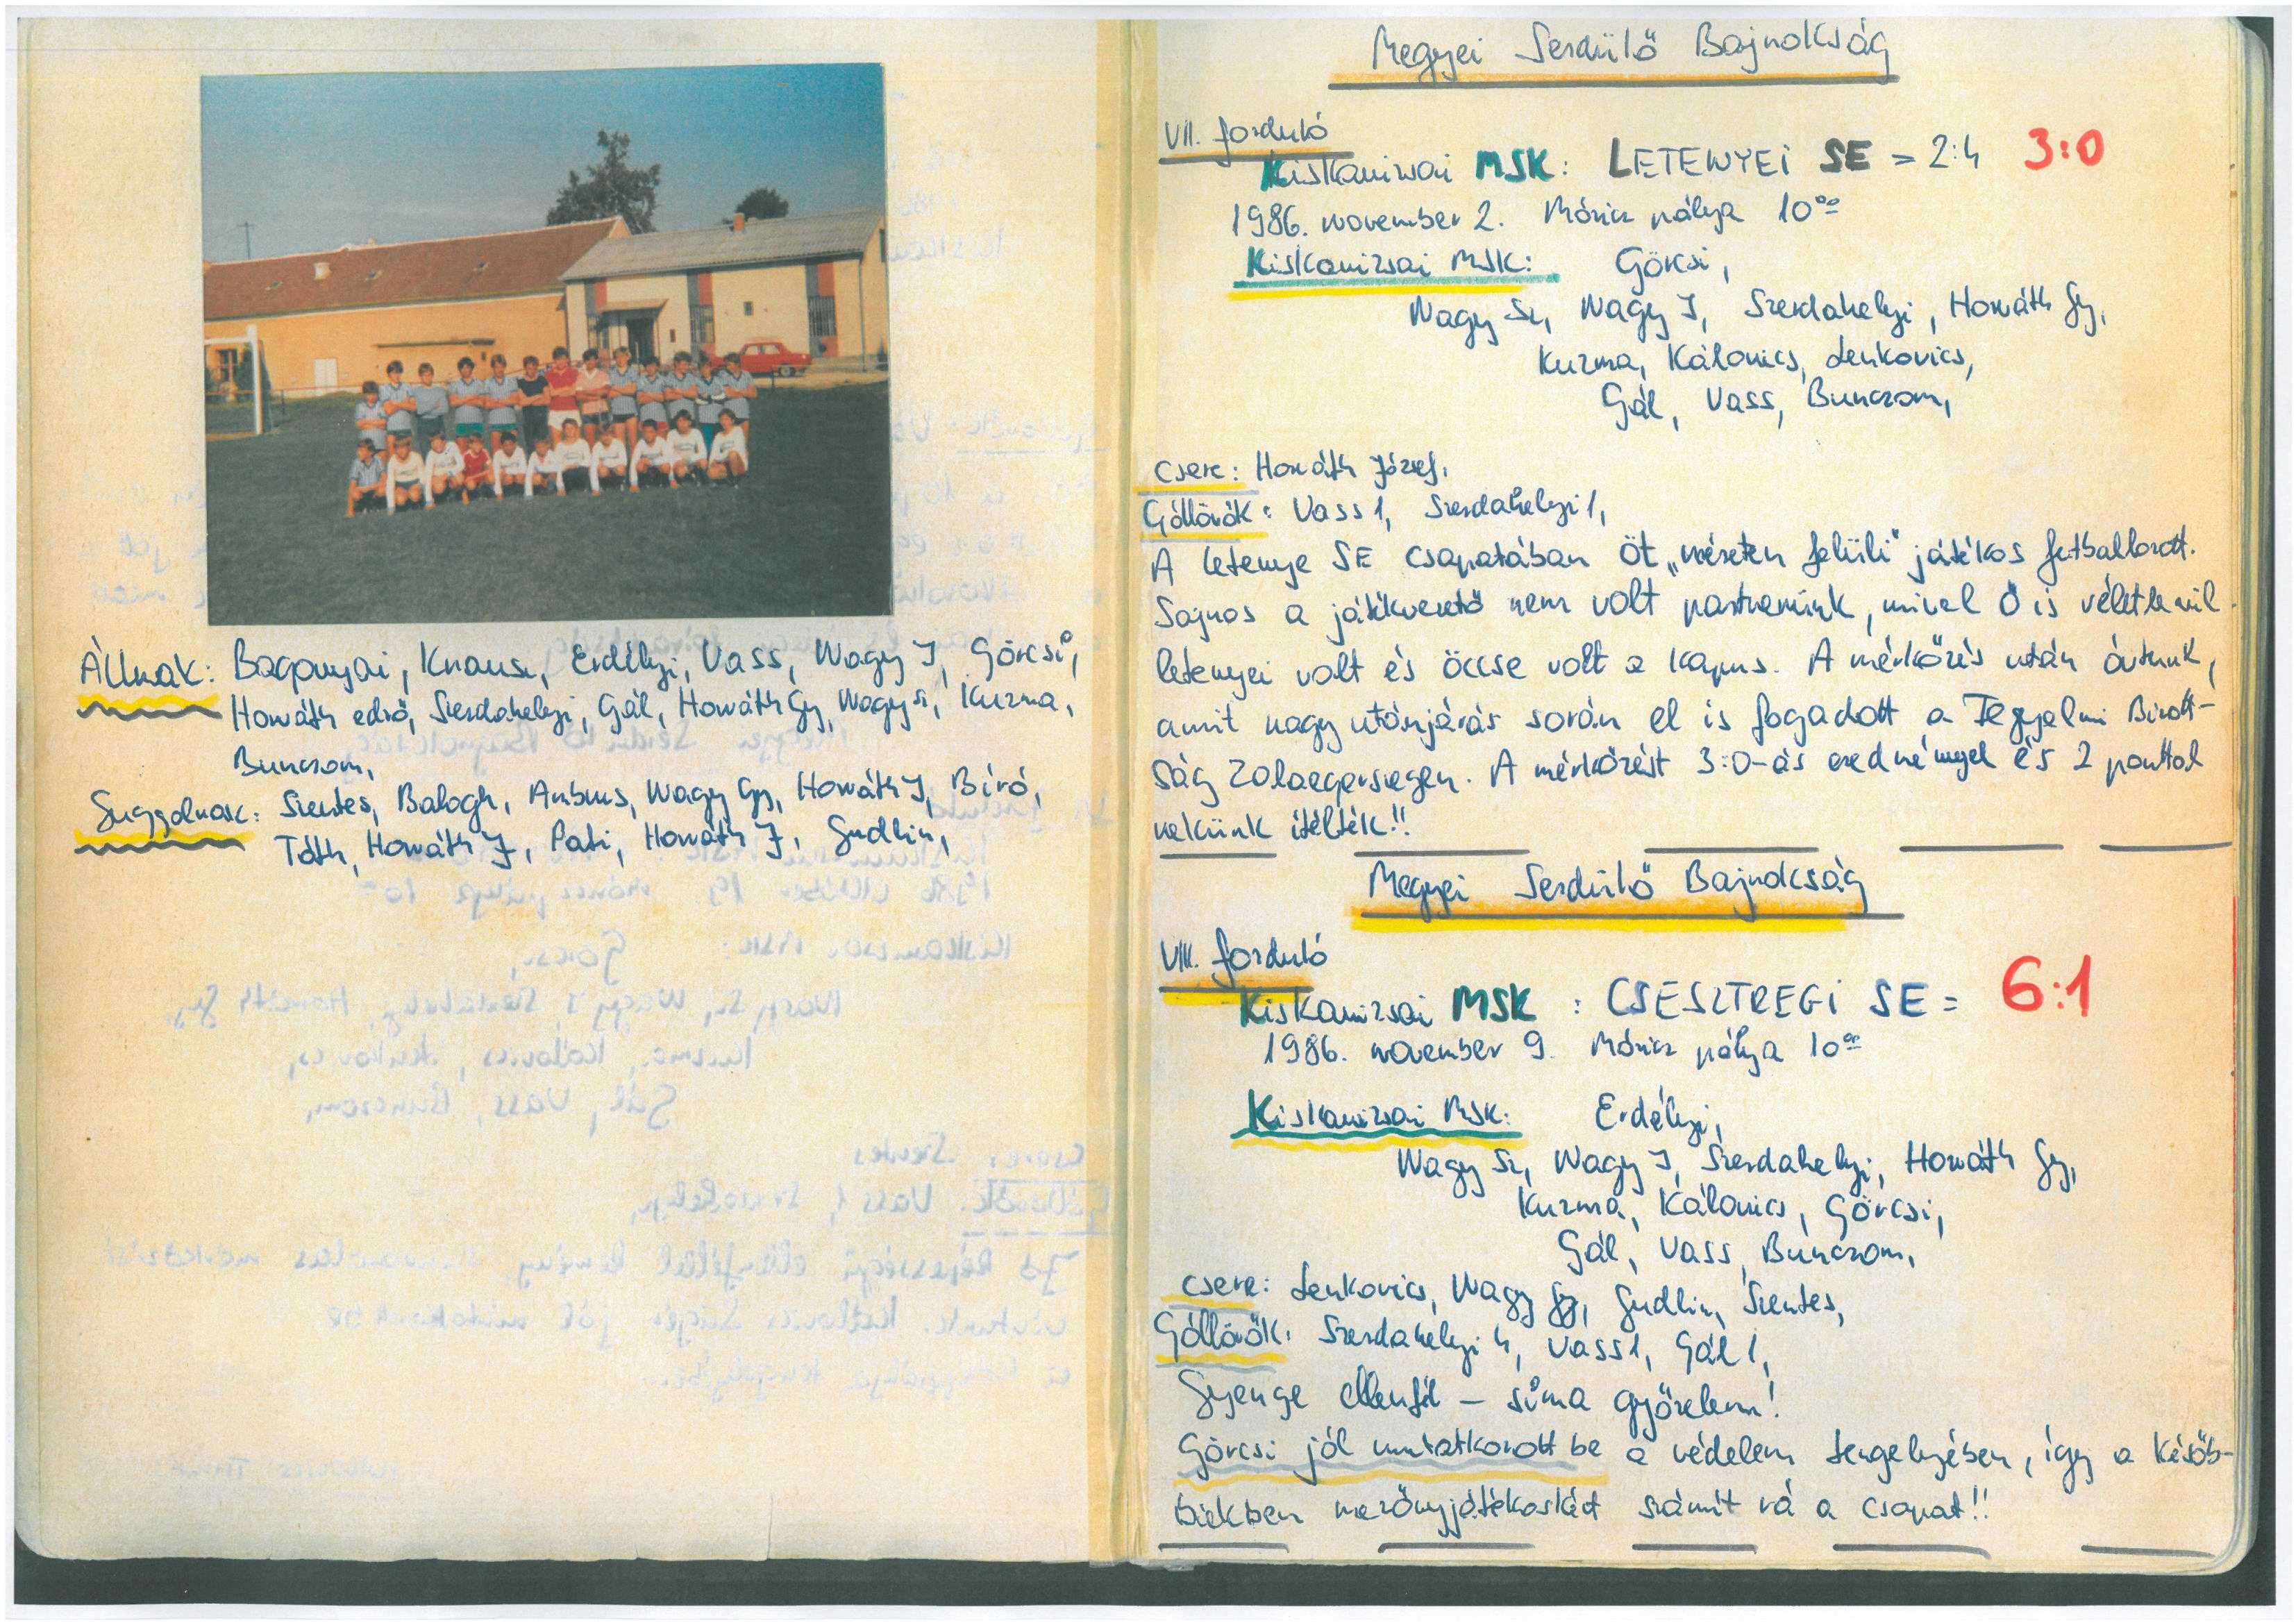 Állnak: Bagonyai, Knausz, Erdélyi, Vass, Nagy I, Görcsi,
Horváth edző, Szerdahelyi, Gál, Horváth Gy, Nagy Sz, Kuzma,
Bunczom,
Guggolnak: Szentes, Balogh, Ambrus, Nagy Gy, Horváth I, Bíró,
Tóth, Horváth J, Pati, Horváth J, Gudlin,
Megyei Serdülő Bajnokság
VII. forduló
Kiskanizsai MSK: LETENYEI SE = 2:4 3:0
1986. november 2. Móricz pálya 10°°
Kiskanizsai MSK: Görcsi,
Nagy Sz, Nagy I, Szerdahelyi, Horváth Gy,
Kuzma, Kálovics, Lenkovics,
Gál, Vass, Bunczom,
Csere: Horváth József,
Góllövők: Vass 1, Szerdahelyi 1,
A letenye SE csapatában öt „méreten felüli" játékos futballozott.
Sajnos a játékvezető nem volt partnerünk, mivel Ő is véletlenül
letenyei volt és öccse volt a kapus. A mérkőzés után óvtunk,
amit nagy utánjárás során el is fogadott a Fegyelmi Bizott-
ság Zalaegerszegen. A mérkőzést 3:0-ás eredménnyel és 2 ponttal
nekünk ítélték!!
Megyei Serdülő Bajnokság
VIII. forduló
Kiskanizsai MSK : CSESZTREGI SE = 6:1
1986. november 9. Móricz pálya 10°°
Kiskanizsai MSK: Erdélyi,
Nagy Sz, Nagy I, Szerdahelyi, Horváth Gy,
Kuzma, Kálovics, Görcsi,
Gál, Vass, Bunczom,
csere: Lenkovics, Nagy Gy, Gudlin, Szentes,
Góllövők: Szerdahelyi 4, Vass 1, Gál 1,
Gyenge ellenfél – síma győzelem!
Görcsi jól mutatkozott be a védelem tengelyében, így a későb-
biekben mezőnyjátékosként számít rá a csapat!!